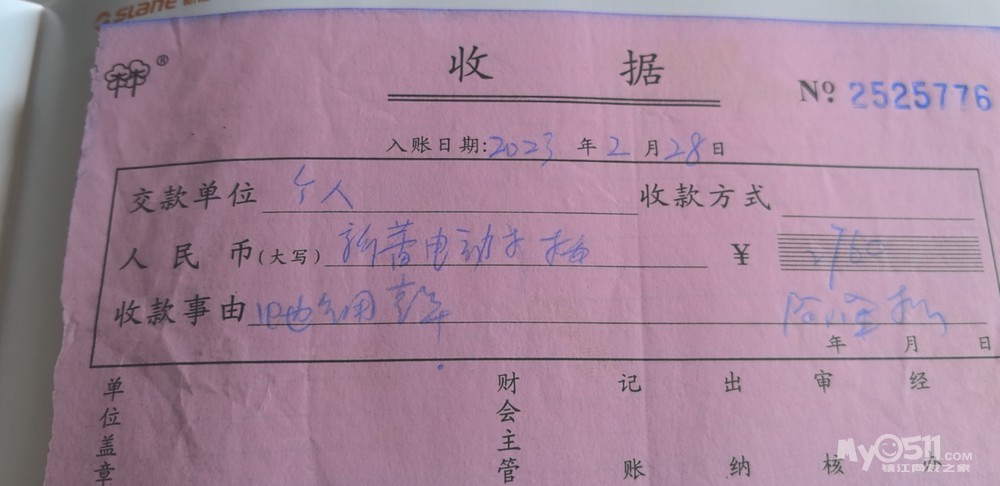 SLANE
®
收 据
№ 2525776
入账日期:2023 年 2 月 28 日
交款单位 个人 收款方式
人民币(大写) 新蕾电动 ¥ 2760
收款事由
年 月 日
单位盖章 财会主管 记账 出纳 审核 经办
My0511.com
镇江网友之家